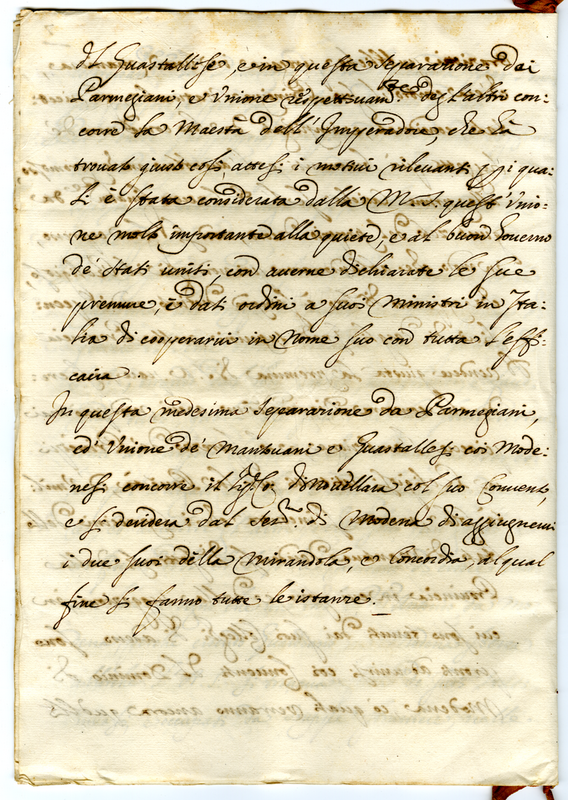 di Guastallese, e in questa separatione dai
Parmegiani, e Unione rispettivam.te degl'altri con:
corre la Maestà dell'Imperadore, che hà
trovati giusti così attesi i motivi rilevanti p i qua:
li è stata considerata dalla M. S. quest'Unio:
ne molto importante alla quiete, e al buon Governo
de' stati uniti con averne dichiarate le sue
premure, e dati ordini a' suoi Ministri in Ita:
lia di cooperarvi in Nome suo con tutta l'effi:
cacia.
In questa medesima separazione da Parmegiani,
ed' Unione de' Mantuani e Guastallesi coi Mode:
nesi concorre il di Novellara col suo Convento,
e si desidera dal Ser.mo di Modena di aggiugnervi
i due suoi della Mirandola, e Concordia, al qual
fine si fanno tutte le istanze.